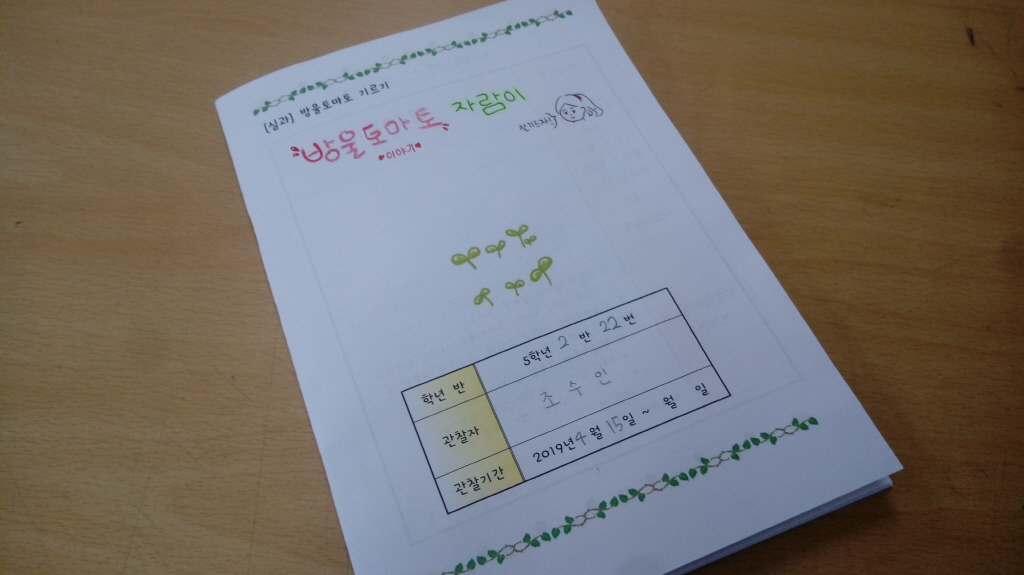 [실과] 방울토마토 기르기
방울토마토 자람이
♥이야기♥
학년 반 5학년 2 반 22번
관찰자 조수인
관찰기간 2019년 4월 15일 ~ 월 일